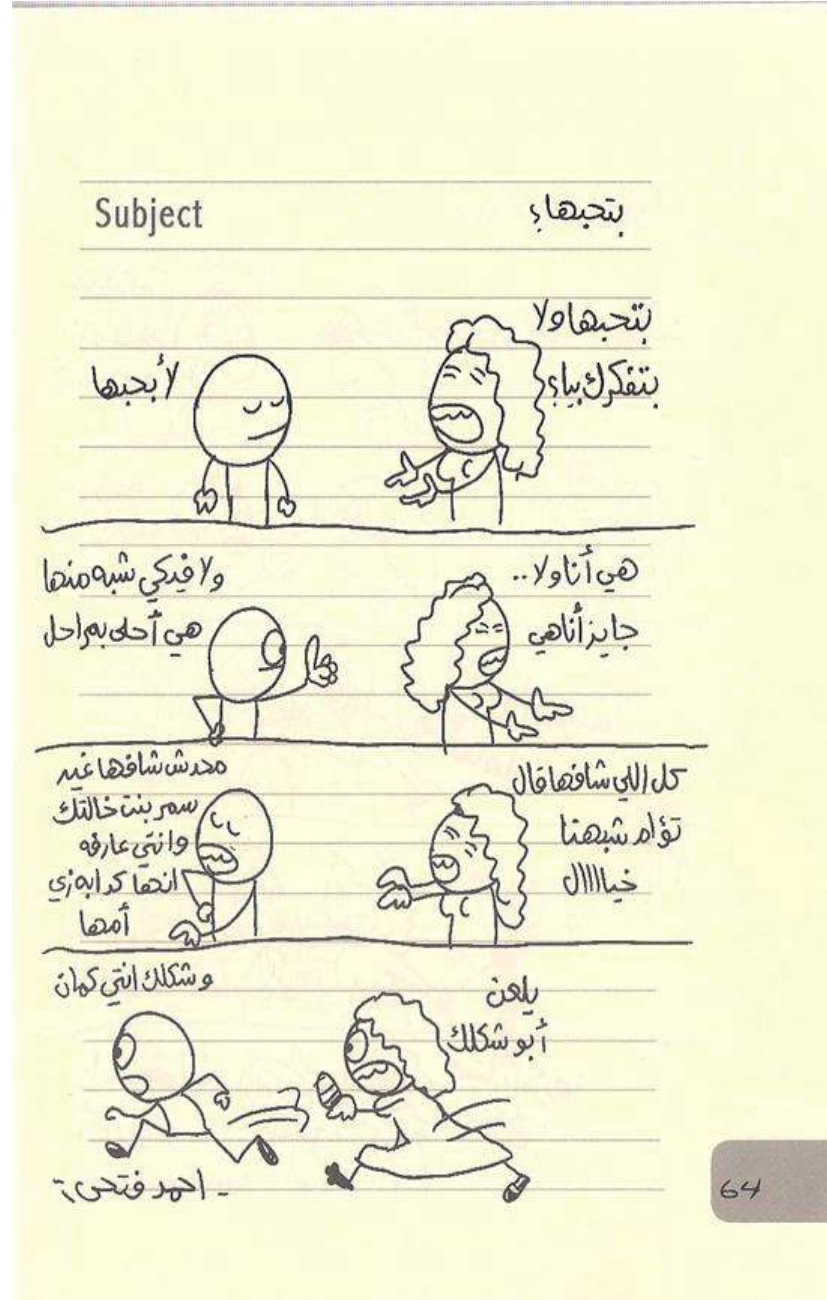 Subject
بتحبها؟
بتحبها ولا
بتفكرك بيا؟
لأ بحبها
هي أنا ولا ..
جايز أنا هي
ولا فيكي شبه منها
هي أحلى بمراحل
كل اللي شافها قال
تؤام شبهنا
خيااااال
محدش شافها غير
سمر بنت خالتك
وانتي عارفه
انها كدابه زي
أمها
يلعن
أبو شكلك
وشكلك انتي كمان
- احمد فتحى :
64